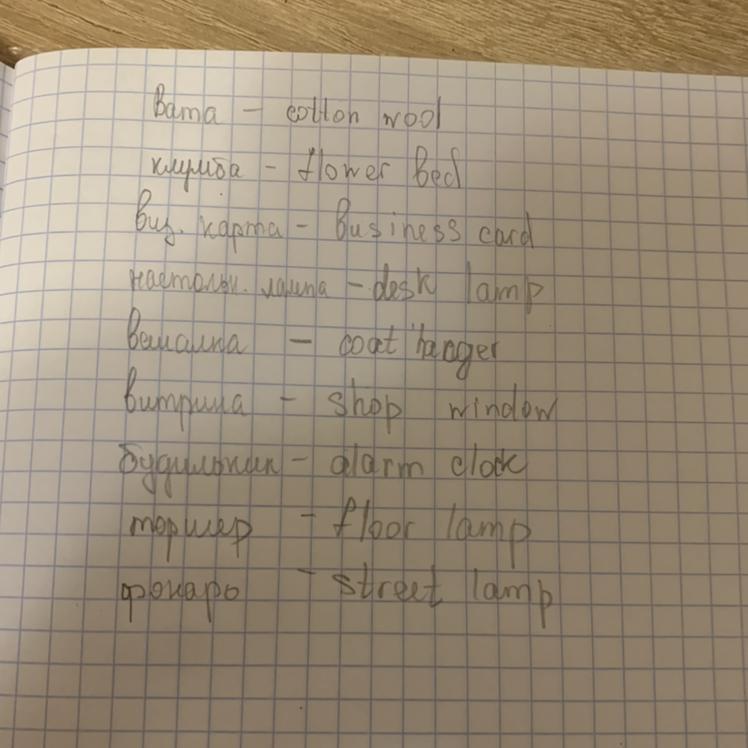 Вата - cotton wool
клумба - flower bed
виз. карта - Business card
настольн. лампа - desk lamp
вешалка - coat hanger
витрина - shop window
будильник - alarm clock
торшер - floor lamp
фонарь - street lamp